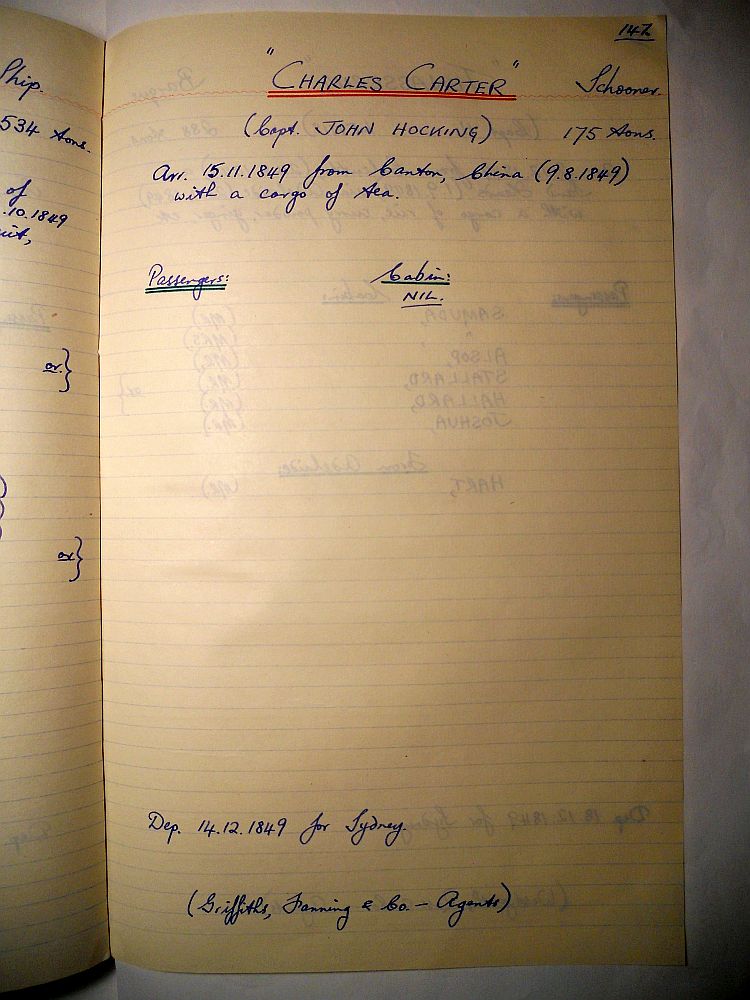 Ship.
534 tons.
of
.10.1849
or}
or}
147.
"CHARLES CARTER" Schooner.
(Capt. JOHN HOCKING) 175 tons.
Arr. 15.11.1849 from Canton, China (9.8.1849)
with a cargo of tea.
Passengers: Cabin:
NIL.
Dep. 14.12.1849 for Sydney.
(Griffiths, Fanning & Co. - Agents)